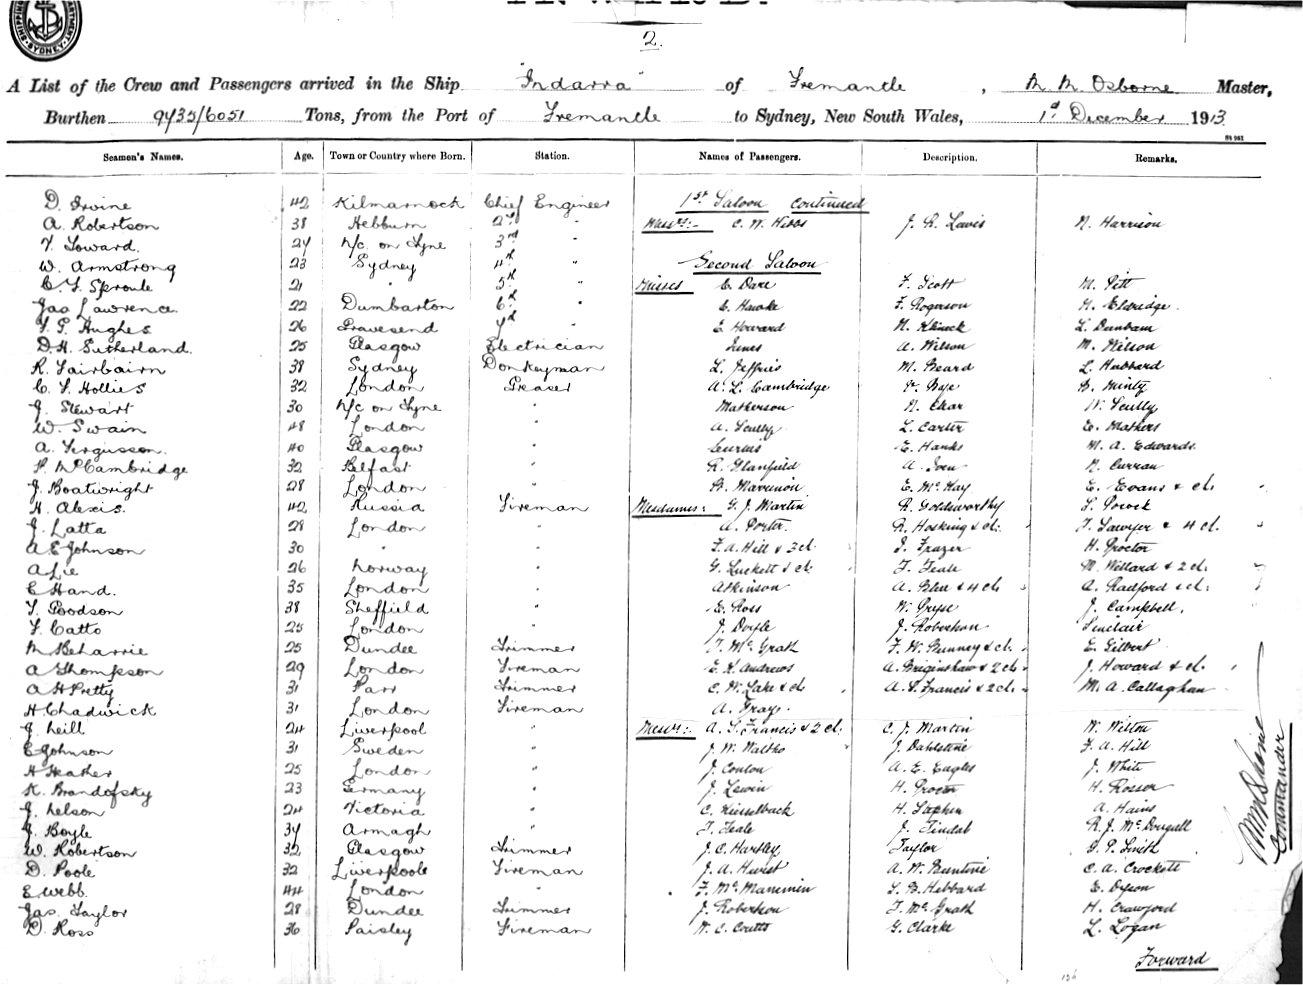 SHIPPING DEPARTMENT SYDNEY
2.
A List of the Crew and Passengers arrived in the Ship "Indarra" of Fremantle, M M Osborne Master,
Burthen 9735/6051 Tons, from the Port of Fremantle to Sydney, New South Wales, 1st December 1913
Seamen's Names. Age. Town or Country where Born. Station. Names of Passengers. Description. Remarks.
D. Irvine 42 Kilmarnock Chief Engineer 1st Saloon continued
A. Robertson 38 Hebburn 2nd " Messrs:- C. W. Hibbs J. R. Lewis N. Harrison
T. Toward 24 N/c on Tyne 3rd "
W. Armstrong 23 Sydney 4th " Second Saloon
C T Sproule 21 " 5th " Misses C. Dare F. Scott M. Pitt
Jas Lawrence 22 Dumbarton 6th " E. Hawke F. Rogerson H. Eldridge
T. G. Hughes 26 Gravesend 7th " E. Howard L. Dunbam
D. H. Sutherland 25 Glasgow Electrician Innes A. Wilson M. Wilson
R. Fairbairn 38 Sydney Donkeyman L. Jeffries M. Beard L. Hubbard
C. F. Hollies 32 London Greaser A. L. Cambridge B. Minty
J. Stewart 30 N/c on Tyne " Matherson N. Char W. Scully
W. Swain 48 London " A. Scully L. Carter E. Mathers
A. Fergusson 40 Glasgow " E. Hanks M. A. Edwards
P. McCambridge 32 Belfast " R. Glanfield A. Iven N. Curran
J. Boatwright 28 London " E. McKay E. Evans & ch. "
H. Alexis 42 Russia Fireman Mesdames: G. J. Martin R. Goldsworthy L. Pocock
J. Latta 28 London " A. Porter R. Hosking & ch. T. Sawyer & 4 ch. "
A E Johnson 30 " " F. A. Hill & 3 ch. J. Frazer H. Proctor
A Lie 26 Norway " G. Luckett & ch. F. Teale M. Willard & 2 ch. "
E Hand. 35 London " Atkinson A. Blee & 4 ch. A. Radford & ch. "
T. Goodson 38 Sheffield " E. Ross W. Gryse J. Campbell.
F. Catto 25 London " J. Doyle J. Robertson Sinclair
M Beharrie 25 Dundee Trimmer T. McGrath F. W. Bunney & ch. E. Gilbert
A Thompson 29 London Fireman E. L. Andrews A. Briginshaw & 2 ch. J. Howard & ch. "
A H Pretty 31 Parr Trimmer C. W. Lake & ch. A. S. Francis & 2 ch. M. A. Callaghan
H Chadwick 31 London Fireman A. Gray.
J. Neill 24 Liverpool " Messrs:- A. S. Francis & 2 ch. C. J. Martin W. Wilton
E Johnson 31 Sweden " J. W. Waltho J. Dahlstine F. A. Hill
H Heather 25 London " J. Conlon A. E. Eagles J. White
K. Brandofsky 23 Germany " J. Lewin H. Proctor H. Rosser
J. Nelson 24 Victoria " C. Kieselback H. Stephen A. Hains
J. Boyle 34 Armagh " F. Teale J. Tindal R. J. McDougall
W. Robertson 32 Glasgow Trimmer J. C. Hartley Taylor G. P. Smith
D. Poole 32 Liverpool Fireman J. A. Hurst A. W. Buntine C. A. Crockett
E Webb. 44 London " F. McManemin L. B. Hebbard E. Dyson
Jas. Taylor 28 Dundee Trimmer J. Robertson F. McGrath H. Crawford
D. Ross 36 Paisley Fireman W. C. Coutts G. Clarke L. Logan
Commander
Forward